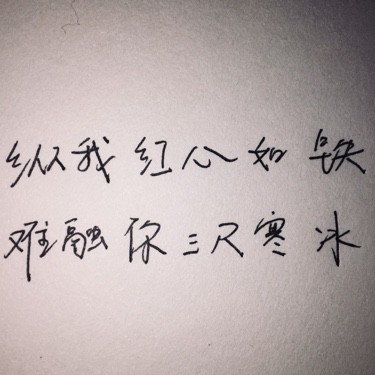 纵我红心如铁
难融你三尺寒冰